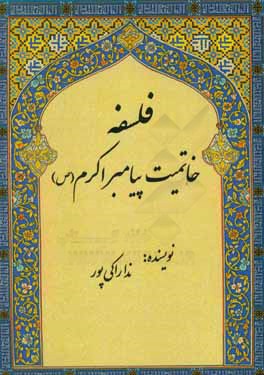 فلسفه
خاتمیت پیامبر اکرم (ص)
نویسنده:
ندا راکی پور